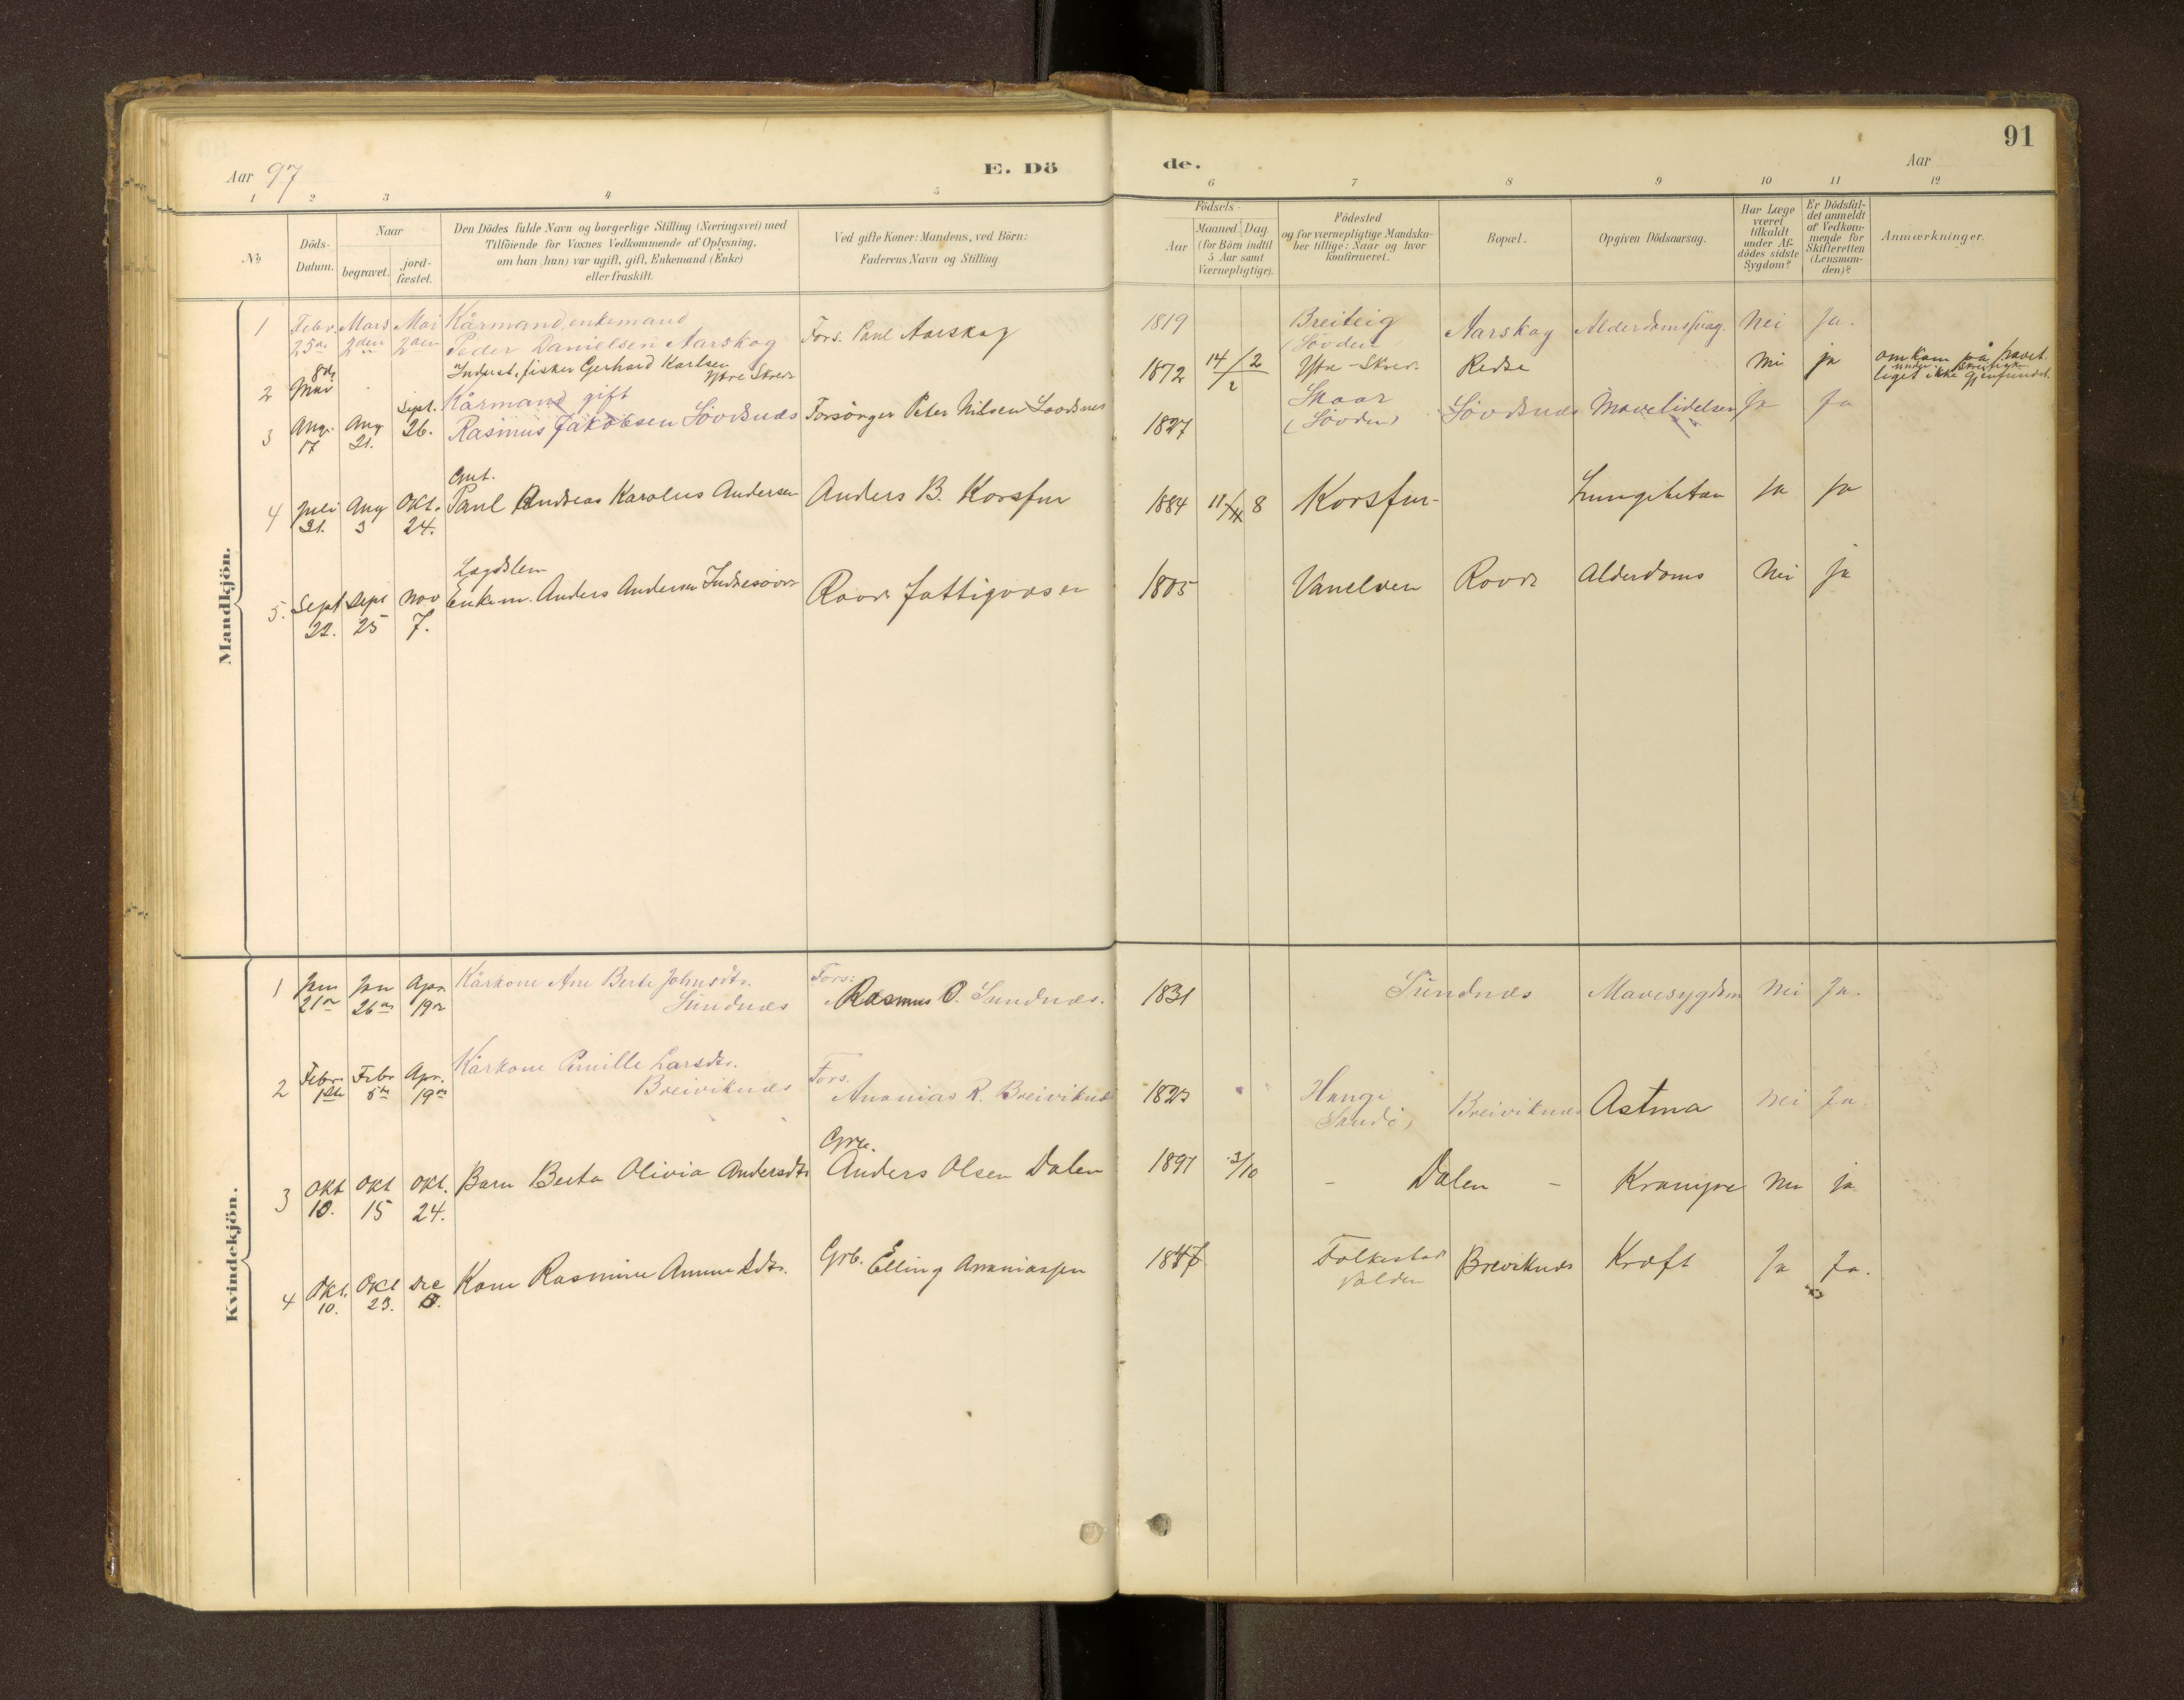 91
Aar 97
E. Dö
de.
Aar
1 2 3 4 5 6 7 8 9 10 11 12
No
Döds-
Datum.
Naar
begravet.
jord-
fæstet.
Den Dödes fulde Navn og borgerlige Stilling (Næringsvei) med
Tilföiende for Voxnes Vedkommende af Oplysning,
om han (hun) var ugift, gift, Enkemand (Enke)
eller fraskilt.
Ved gifte Koner: Mandens, ved Börn:
Faderens Navn og Stilling
Födsels-
Aar
Maaned. Dag
(for Börn indtil
5 Aar samt
Værnepligtige).
Födested
og for værnepligtige Mandska-
ber tillige: Naar og hvor
konfirmeret.
Bopæl.
Opgiven Dödsaarsag.
Har Læge
været
tilkaldt
under Af-
dödes sidste
Sygdom?
Er Dödsfal-
det anmeldt
af Vedkom-
mende for
Skifteretten
(Lensman-
den)?
Anmærkninger.
Mandkjön.
1 Febr. Mars Mai Kårmand, enkemand
25de 2den 2den Peder Danielsen Aarskog Fors. Paul Aarskog 1819 Breiteig (Sövde) Aarskog Alderdomssvag. Nei Ja.
2 8de Mai Indrest, fisker Gerhard Karlsen
Ytre Skrede 1872 14/2 2 Ytre-Skrede Redse Nei ja omkom på havet
under
liget ikke gjenfundet.
3 Aug. 17 Aug 21. Sept. 26. Kårmand gift
Rasmus Jakobsen Sövdsnæs Forsörger Peter Nilsen Sovdsnes 1827 Skaar (Sövde) Sövdsnæs Mavelidelser Ja Ja
4 Juli 31. Aug 3 Okt. 24. Gut.
Paul Andreas Karolus Andersen Anders B. Korsfur 1884 11/11 8 Korsfur- Lungebetæn Ja Ja
5. Sept 22. Sept 25 Nov 7. Lægdslem
Enkem. Anders Andersen Indresövde Rovde fattigvæsen 1805 Vanelven Rovde Alderdoms Nei ja
Kvindekjön.
1 Jan 21de Jan 26de Apr. 19de Kårkone Ane Berte Johnsdtr.
Sundnæs Fors: Rasmus O. Sundnæs. 1831 Sundnæs Mavesygdom Nei Ja.
2 Febr. 1ste Febr 5te Apr. 19de Kårkone Pernille Larsdtr.
Breiviknæs Fors. Ananias R. Breiviknæs 1823 Hauge Sandö, Breiviknæs Astma Nei Ja.
3 Okt 10. Okt 15 Okt. 24. Barn Berta Olivia Andersdtr Grb. Anders Olsen Dalen 1897 3/10 - Dalen - Krampe Nei ja
4 Okt. 10. Okt 23. Dec Kone Rasmine Ammundsdtr. Grb. Elling Ananiassen 1847 Folkestad Volden Breviknæs Kræft Ja Ja.